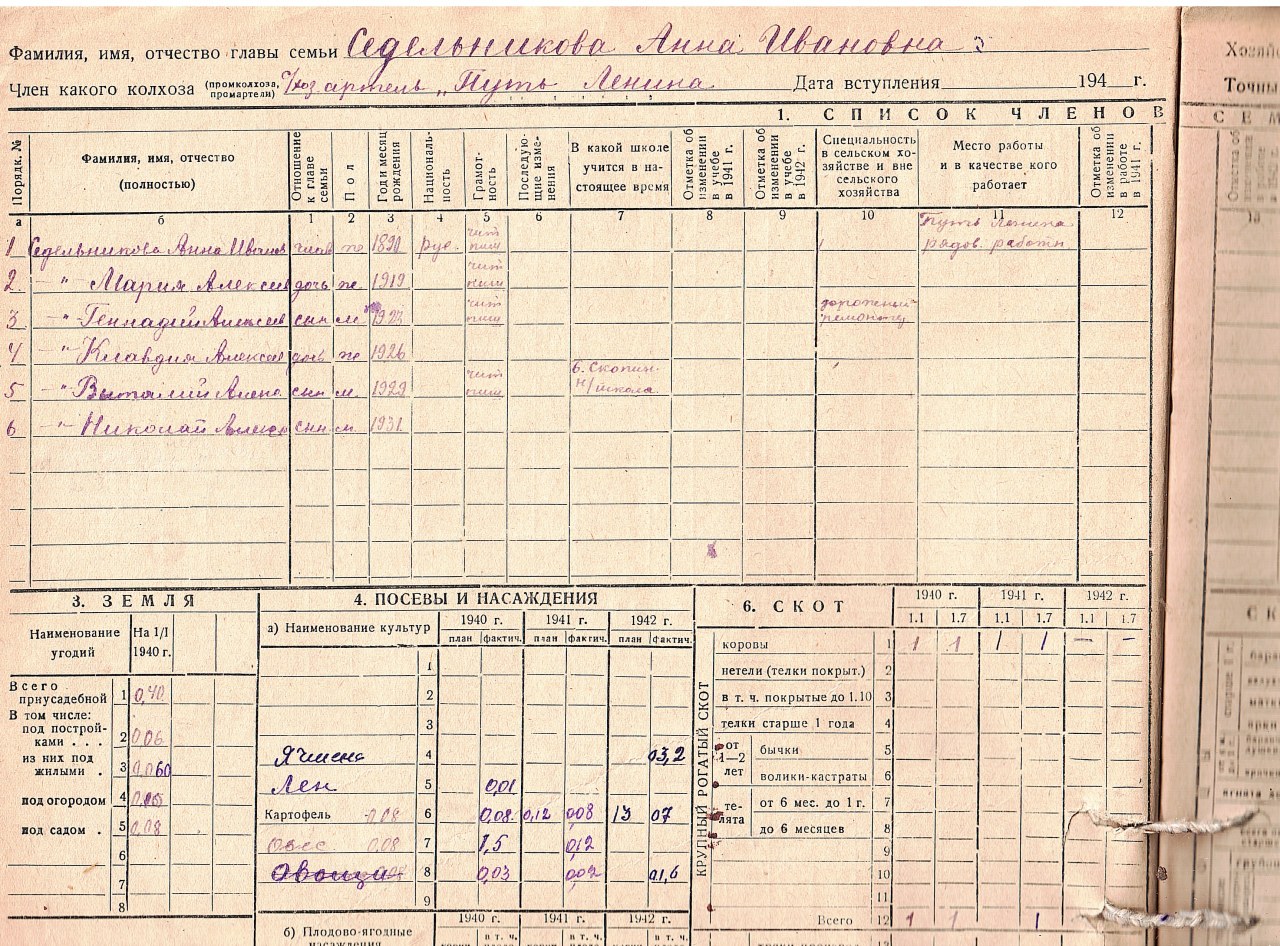 Фамилия, имя, отчество главы семьи Седельникова Анна Ивановна
Член какого колхоза (промколхоза, промартели) с/хоз артель „Путь Ленина Дата вступления 194 г.
1. СПИСОК ЧЛЕНОВ
СЕМ
Хозяйс
Точны
Порядк. №
Фамилия, имя, отчество (полностью)
Отношение к главе семьи
Пол
Год и месяц рождения
Националь-ность
Грамот-ность
Последую-щие изме-нения
В какой школе учится в на-стоящее время
Отметка об изменении в учебе в 1941 г.
Отметка об изменении в учебе в 1942 г.
Специальность в сельском хо-зяйстве и вне сельского хозяйства
Место работы и в качестве кого работает
Отметка об изменении в работе в 1941 г.
а б 1 2 3 4 5 6 7 8 9 10 11 12
1 Седельникова Анна Иванов глава ж 1890 рус. чит пиш Путь Ленина рядов. работн
2. -"- Мария Алексее дочь ж. 1919 чит пиш
3 -"- Геннадий Алексеев сын м 1922 чит пиш дорожный
4 -"- Клавдия Алексее дочь ж 1926
5 -"- Виталий Алекс сын м. 1929 чит пиш Б. Скопин. н/школа
6 -"- Николай Алексе сын м. 1931
3. ЗЕМЛЯ
Наименование угодий На 1/I 1940 г.
Всего приусадебной 1 0,40
В том числе:
под построй-ками . . . 2 0,06
из них под жилыми . 3 0,060
под огородом 4
под садом . 5 0,08
6
7
8
4. ПОСЕВЫ И НАСАЖДЕНИЯ
а) Наименование культур 1940 г. 1941 г. 1942 г.
план фактич. план фактич. план фактич.
1
2
3
Ячмень 4 03,2
Лен 5 0,01
Картофель 0,08 6 0,08 0,12 0,08 13 07
Овес 0,08 7 1,5 0,12
Овощи 8 0,03 0,02 01,6
9
1940 г. 1941 г. 1942 г.
б) Плодово-ягодные насаждения в т. ч. в т. ч. в т. ч.
6. СКОТ 1940 г. 1941 г. 1942 г.
1.1 1.7 1.1 1.7 1.1 1.7
КРУПНЫЙ РОГАТЫЙ СКОТ
коровы 1 1 1 1 1 — —
нетели (телки покрыт.) 2
в т. ч. покрытые до 1.10 3
телки старше 1 года 4
от 1—2 лет бычки 5
волики-кастраты 6
те-лята от 6 мес. до 1 г. 7
до 6 месяцев 8
9
10
11
Всего 12 1 1 1